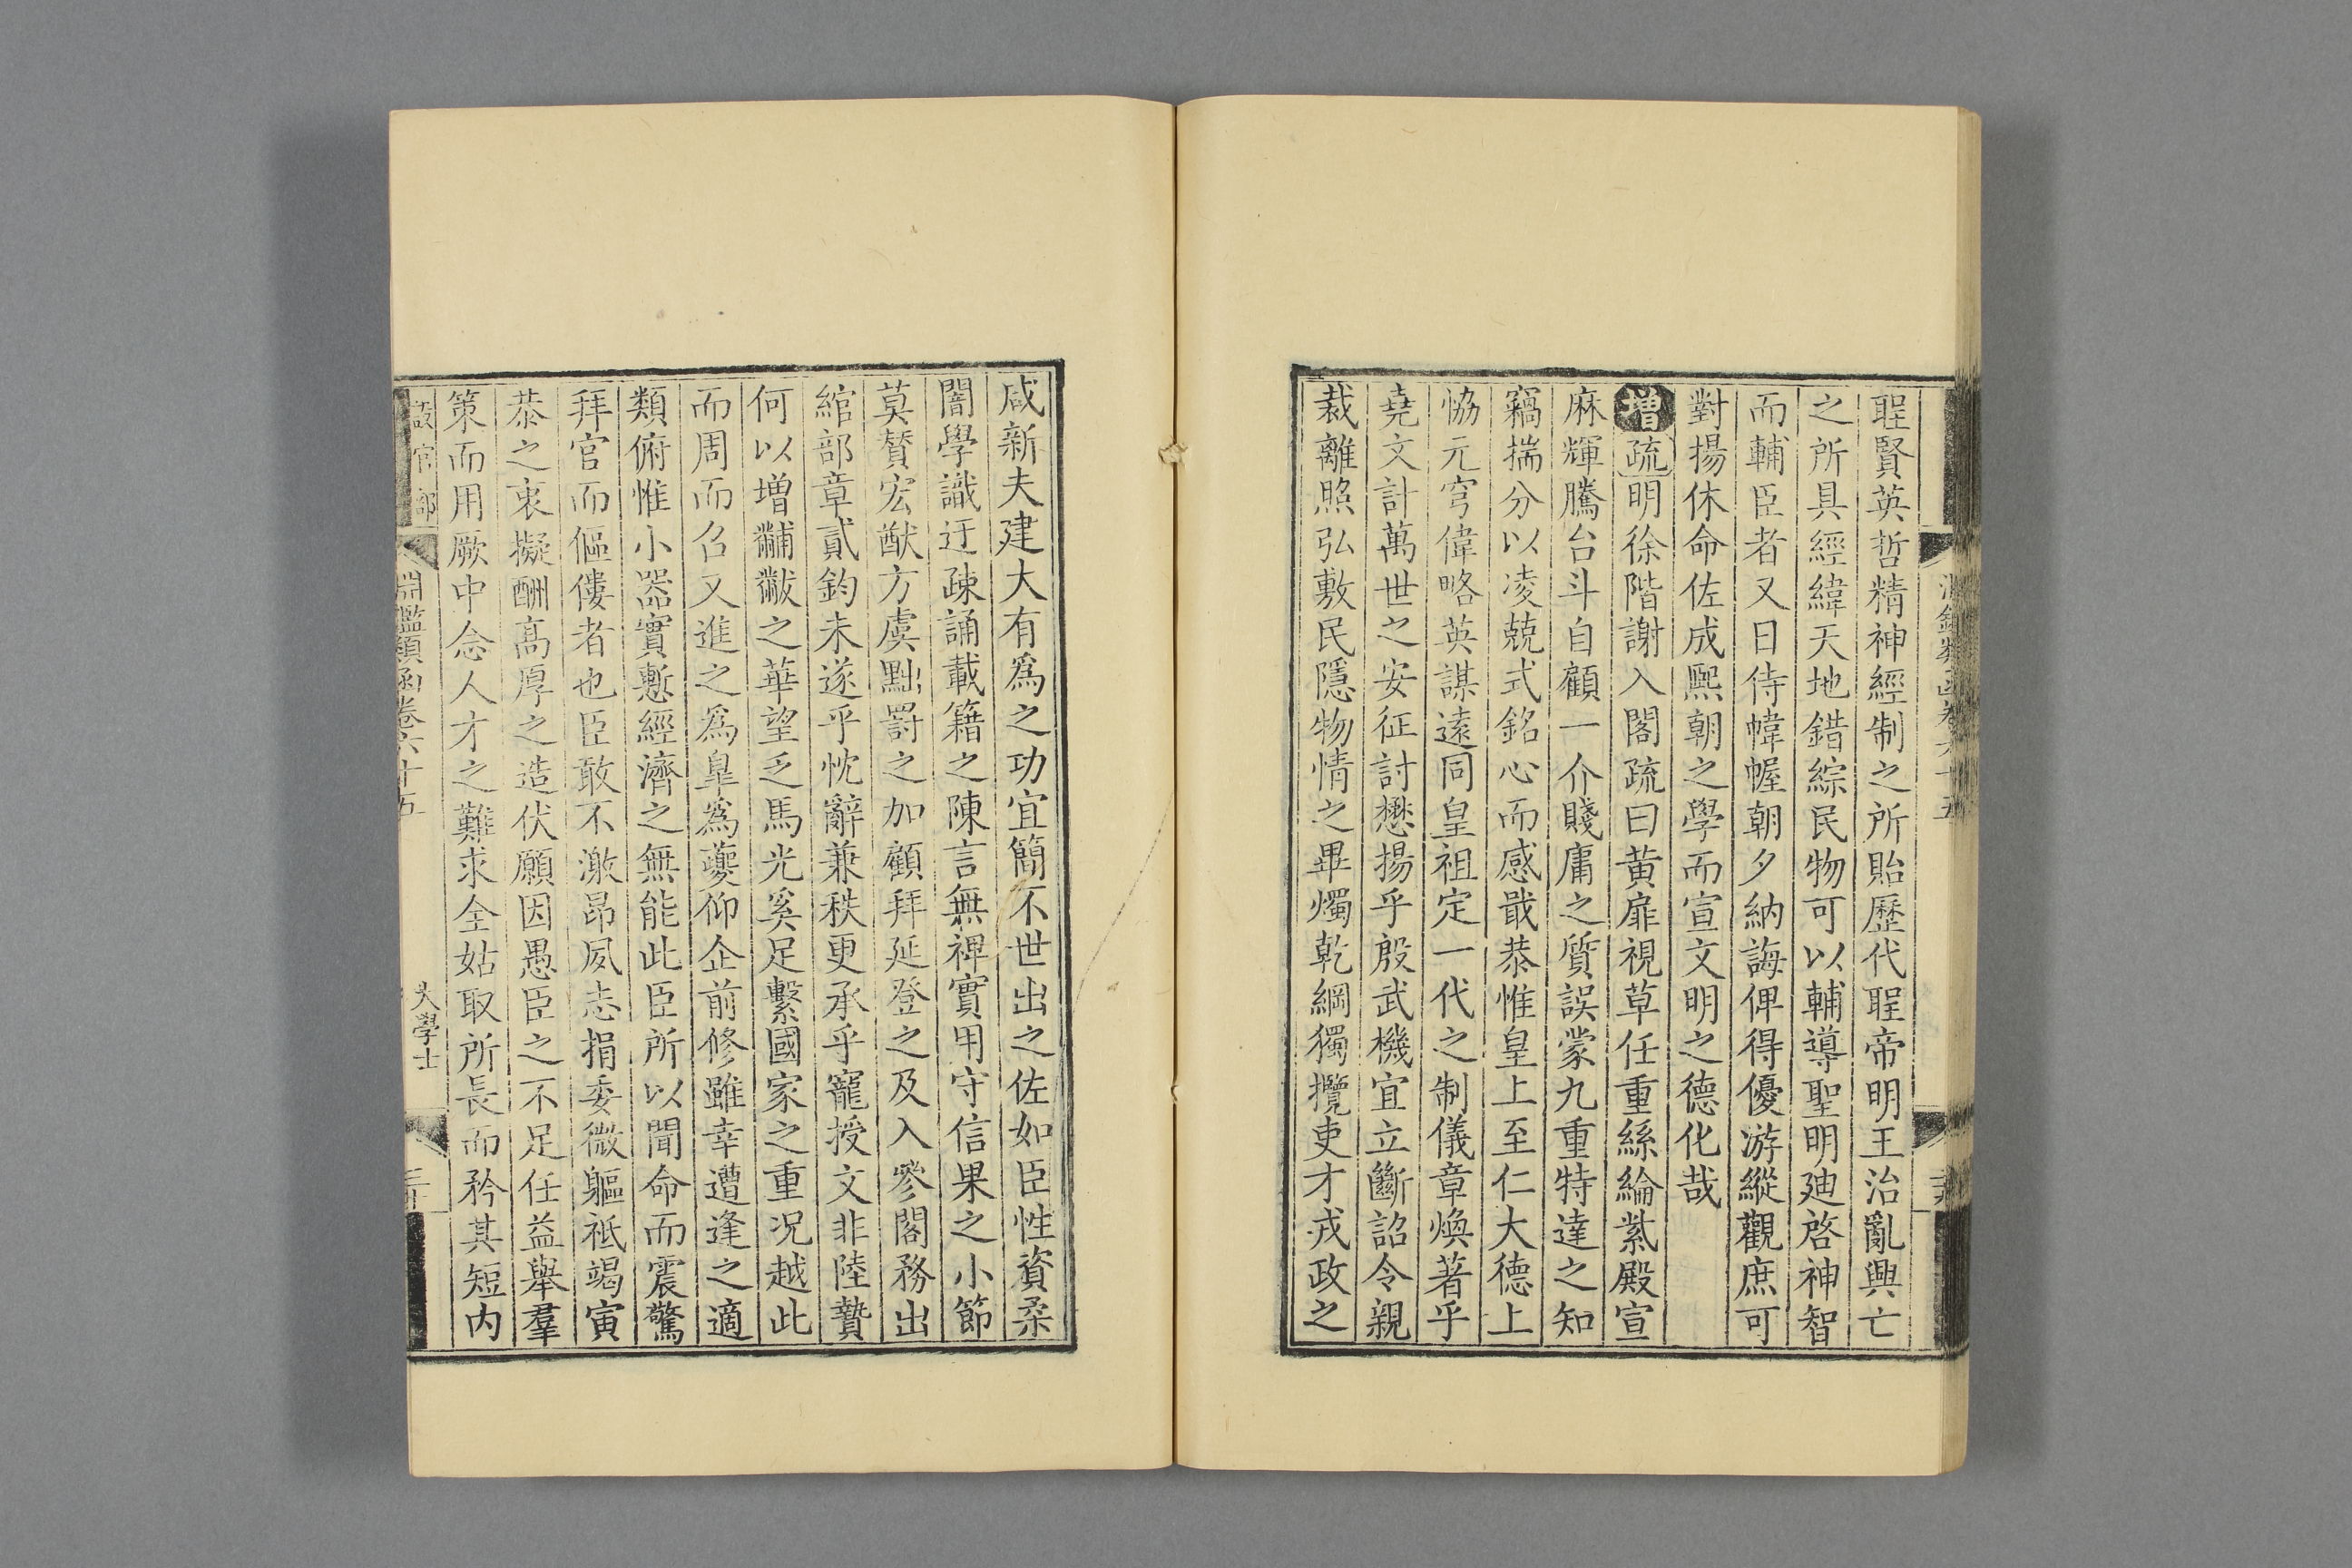 聖賢英哲精神經制之所貽歷代聖帝明王治亂興亡
之所具經緯天地錯綜民物可以輔導聖明廸啓神智
而輔臣者又日侍幃幄朝夕納誨俾得優游縱觀庶可
對揚休命佐成熈朝之學而宣文明之德化哉
增疏明徐階謝入閣疏曰黄扉視草任重絲綸紫殿宣
麻輝騰台斗自顧一介賤庸之質誤蒙九重特達之知
竊揣分以凌兢式銘心而感戢恭惟皇上至仁大德上
恊元穹偉略英謀遠同皇祖定一代之制儀章煥著乎
堯文計萬世之安征討懋揚乎殷武機宜立斷詔令親
裁離照弘敷民隱物情之畢燭乾綱獨攬吏才戎政之
咸新夫建大有爲之功宜簡不世出之佐如臣性資柔
闇學識迂疎誦載籍之陳言無裨實用守信果之小節
莫賛宏猷方虞黜罰之加顧拜延登之及入參閣務出
綰部章貳鈞未遂乎忱辭兼秩更承乎寵授文非陸贄
何以增黼黻之華望乏馬光奚足繫國家之重况越此
而周而召又進之爲皐爲夔仰企前修雖幸遭逢之適
類俯惟小器實慙經濟之無能此臣所以聞命而震驚
拜官而傴僂者也臣敢不激昂夙志捐委微軀祗竭寅
恭之衷擬酬高厚之造伏願因愚臣之不足任益舉羣
策而用厥中念人才之難求全姑取所長而矜其短内
設官部 淵鑑類函卷六十五 大學士